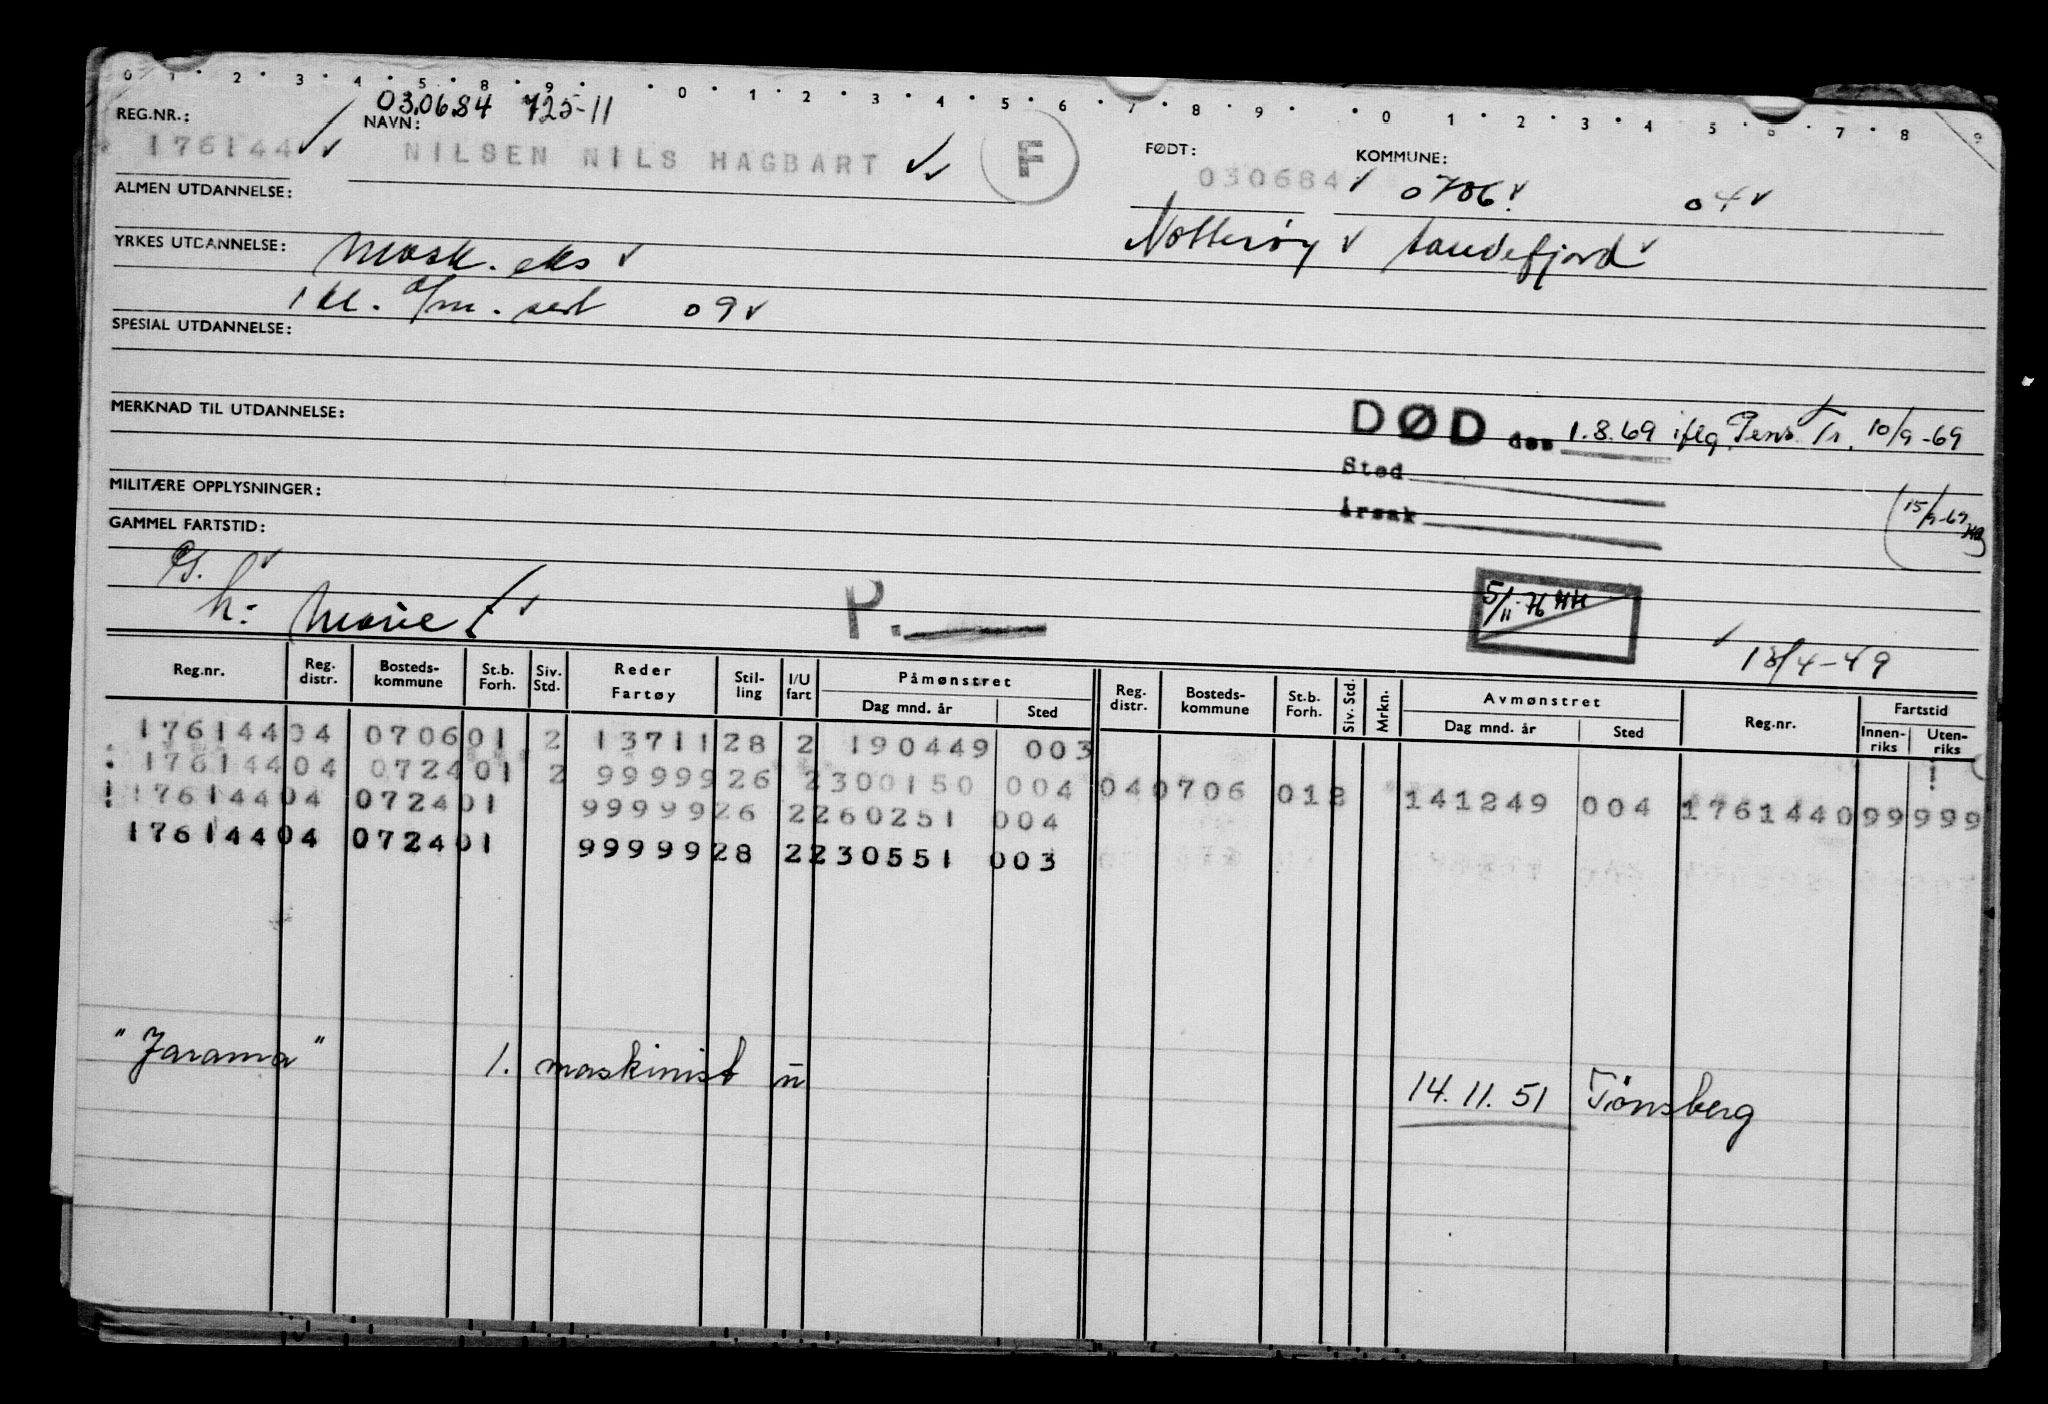 0 1 2 3 4 5 8 9 0 1 2 3 4 5 6 7 8 9 0 1 2 3 4 5 6 7 8 9
03.06.84 725-11
REG.NR.: NAVN: FØDT: KOMMUNE:
176144 NILSEN NILS HAGBART F 030684 0706 04
ALMEN UTDANNELSE:
Nøtterøy Sandefjord
YRKES UTDANNELSE: Mask. eks
1 kl. d/m. sert 09
SPESIAL UTDANNELSE:
MERKNAD TIL UTDANNELSE:
DØD den 1.8.69 iflg. Pens. Tr. 10/9-69
Sted
MILITÆRE OPPLYSNINGER:
15/9-69
Årsak
GAMMEL FARTSTID:
h: Marie E
P.
5/11-76 HH
13/4-49
Reg.nr. Reg. distr. Bosteds- kommune St.b. Forh. Siv. Std. Reder Fartøy Stil- ling I/U fart Påmønstret Dag mnd. år Sted Reg. distr. Bosteds- kommune St.b. Forh. Siv. Std. Mrkn. Avmønstret Dag mnd. år Sted Reg.nr. Fartstid Innen- riks Uten- riks
176144 04 0706 01 2 13711 28 2 190449 003
176144 04 0724 01 2 99999 26 2 300150 004 04 0706 01 2 141249 004 176144 099 999
176144 04 0724 01 99999 26 2 260251 004
176144 04 0724 01 99999 28 2 230551 003
"Jarama" 1. maskinist u 14.11.51 Tønsberg